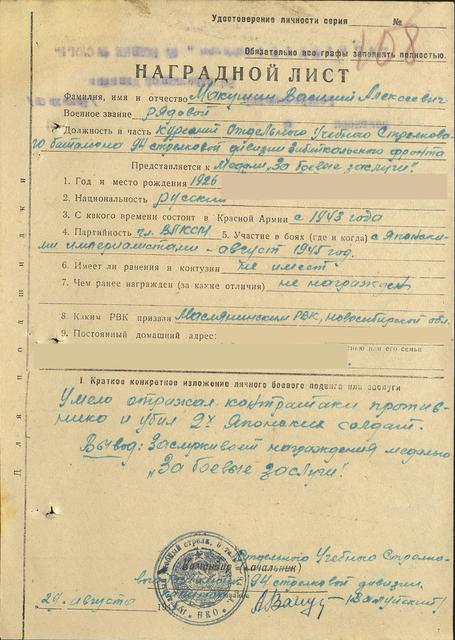 Удостоверение личности серия № 
108
Обязательно все графы заполнять полностью.
НАГРАДНОЙ ЛИСТ
Фамилия, имя и отчество Макушин Василий Алексеевич
Военное звание рядовой
Должность и часть Курсант Отдельного Учебного Стрелково-
го батальона 94 стрелковой дивизии Забайкальского фронта
Представляется к Медали „За боевые заслуги"
1. Год и место рождения 1926
2. Национальность русский
3. С какого времени состоит в Красной Армии с 1943 года
4. Партийность чл. ВЛКСМ 5. Участие в боях (где и когда) с Японски-
ми империалистами – август 1945 год.
6. Имеет ли ранения и контузии "не имеет"
7. Чем ранее награжден (за какие отличия) не награжден
8. Каким РВК призван Маслянинским РВК, новосибирской обл.
9. Постоянный домашний адрес:
или его семьи
I. Краткое конкретное изложение личного боевого подвига или заслуги
Умело отражал контратаки против-
ника и убил 2х Японских солдат.
Вывод: Заслуживает награждения медалью
„За боевые заслуги!
Командир (начальник) Отдельного Учебного Стрелко-
94 стрелковой дивизии
(Валуйский)
29. августа
Для подшивки